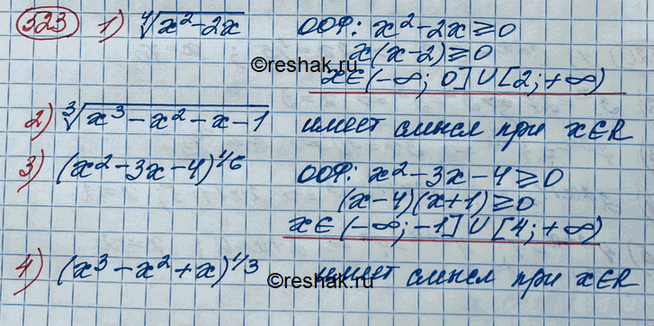 323 1) ∜(x²-2x) ООФ: x²-2x≥0
x(x-2)≥0
©reshak.ru
x∈(-∞; 0]∪[2;+∞)
2) ∛(x³-x²-x-1) имеет смысл при x∈R
3) (x²-3x-4)^1/6 ООФ: x²-3x-4≥0
(x-4)(x+1)≥0
x∈(-∞;-1]∪[4;+∞)
4) (x³-x²+x)^1/3 имеет смысл при x∈R
©reshak.ru